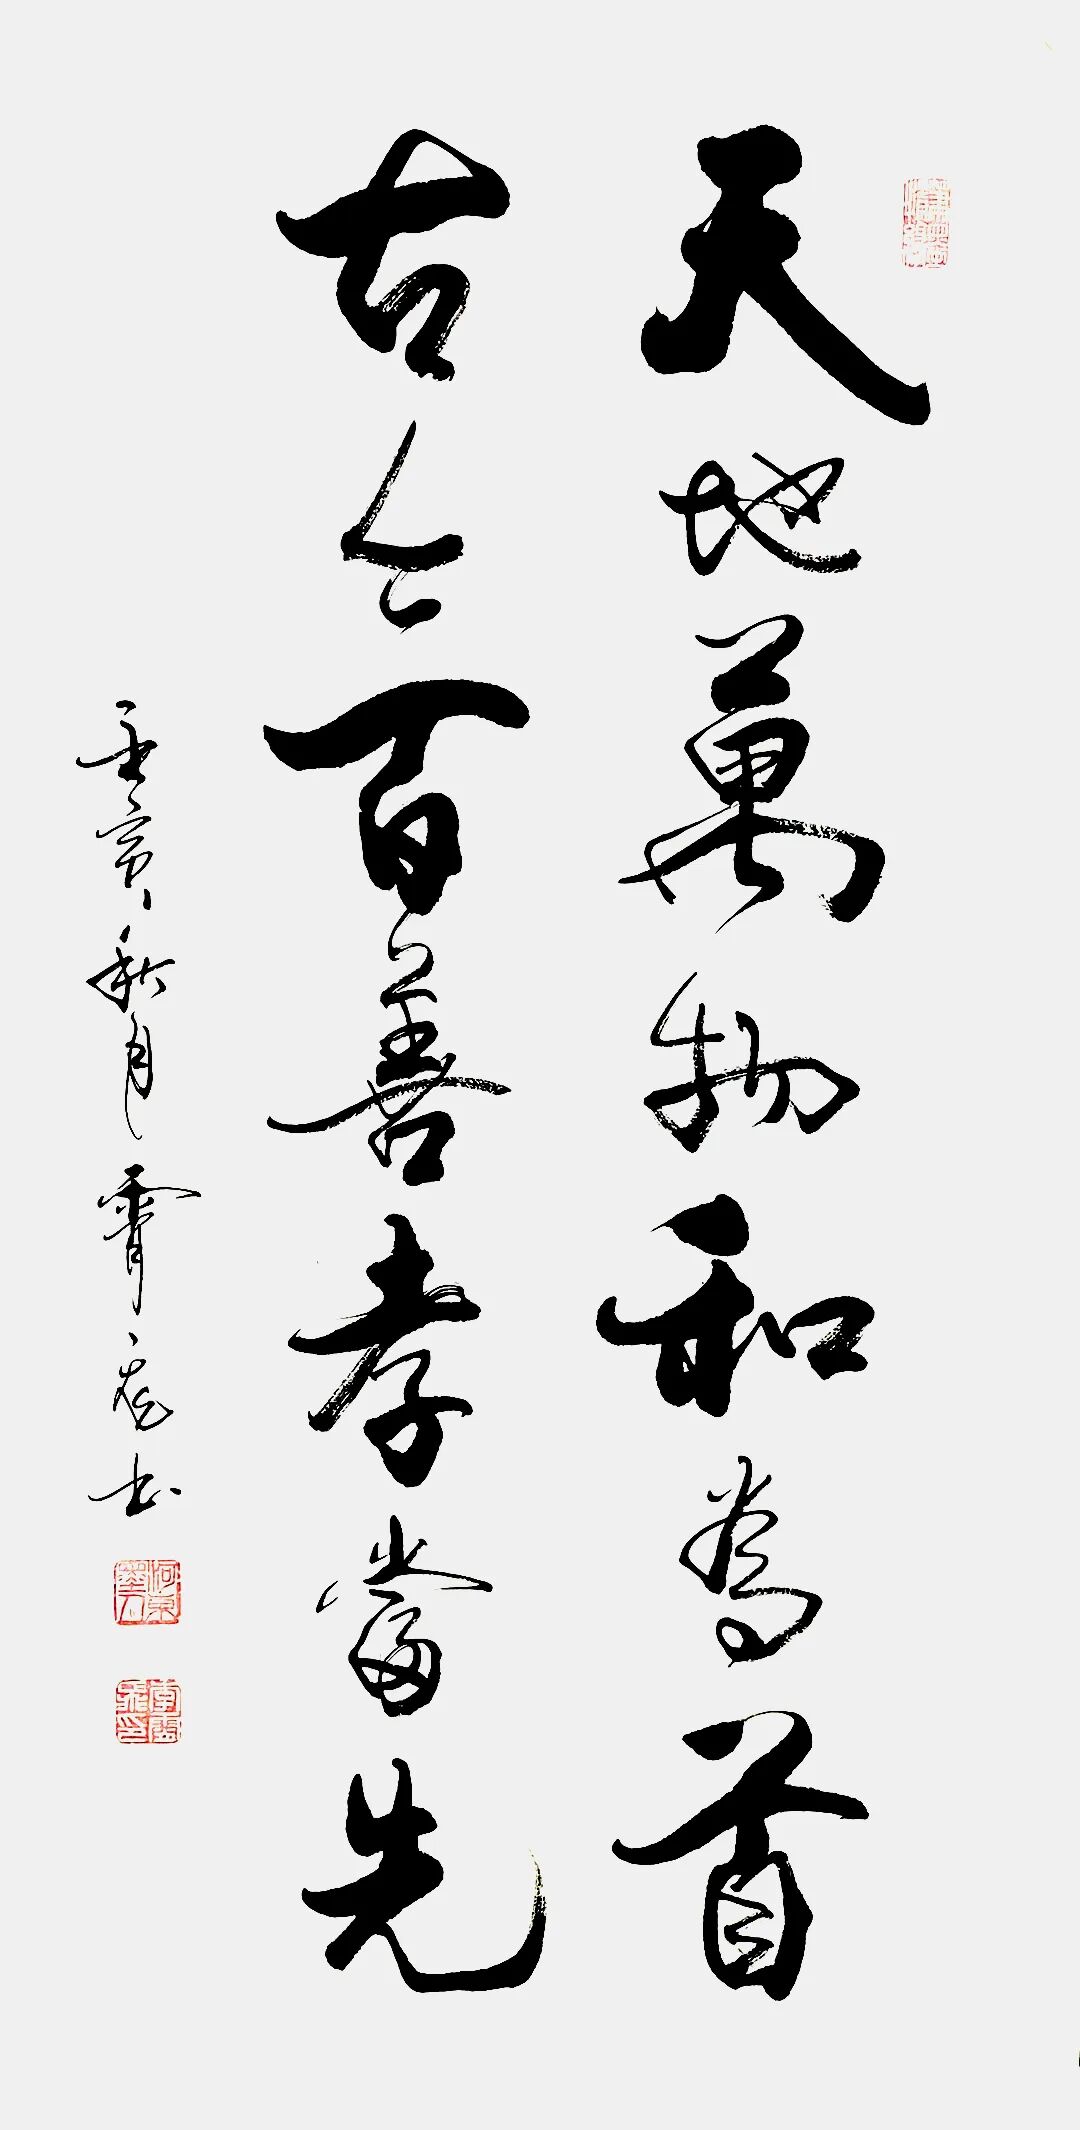 天地萬物和為首
古今百善孝當先
壬寅秋月霄龙书